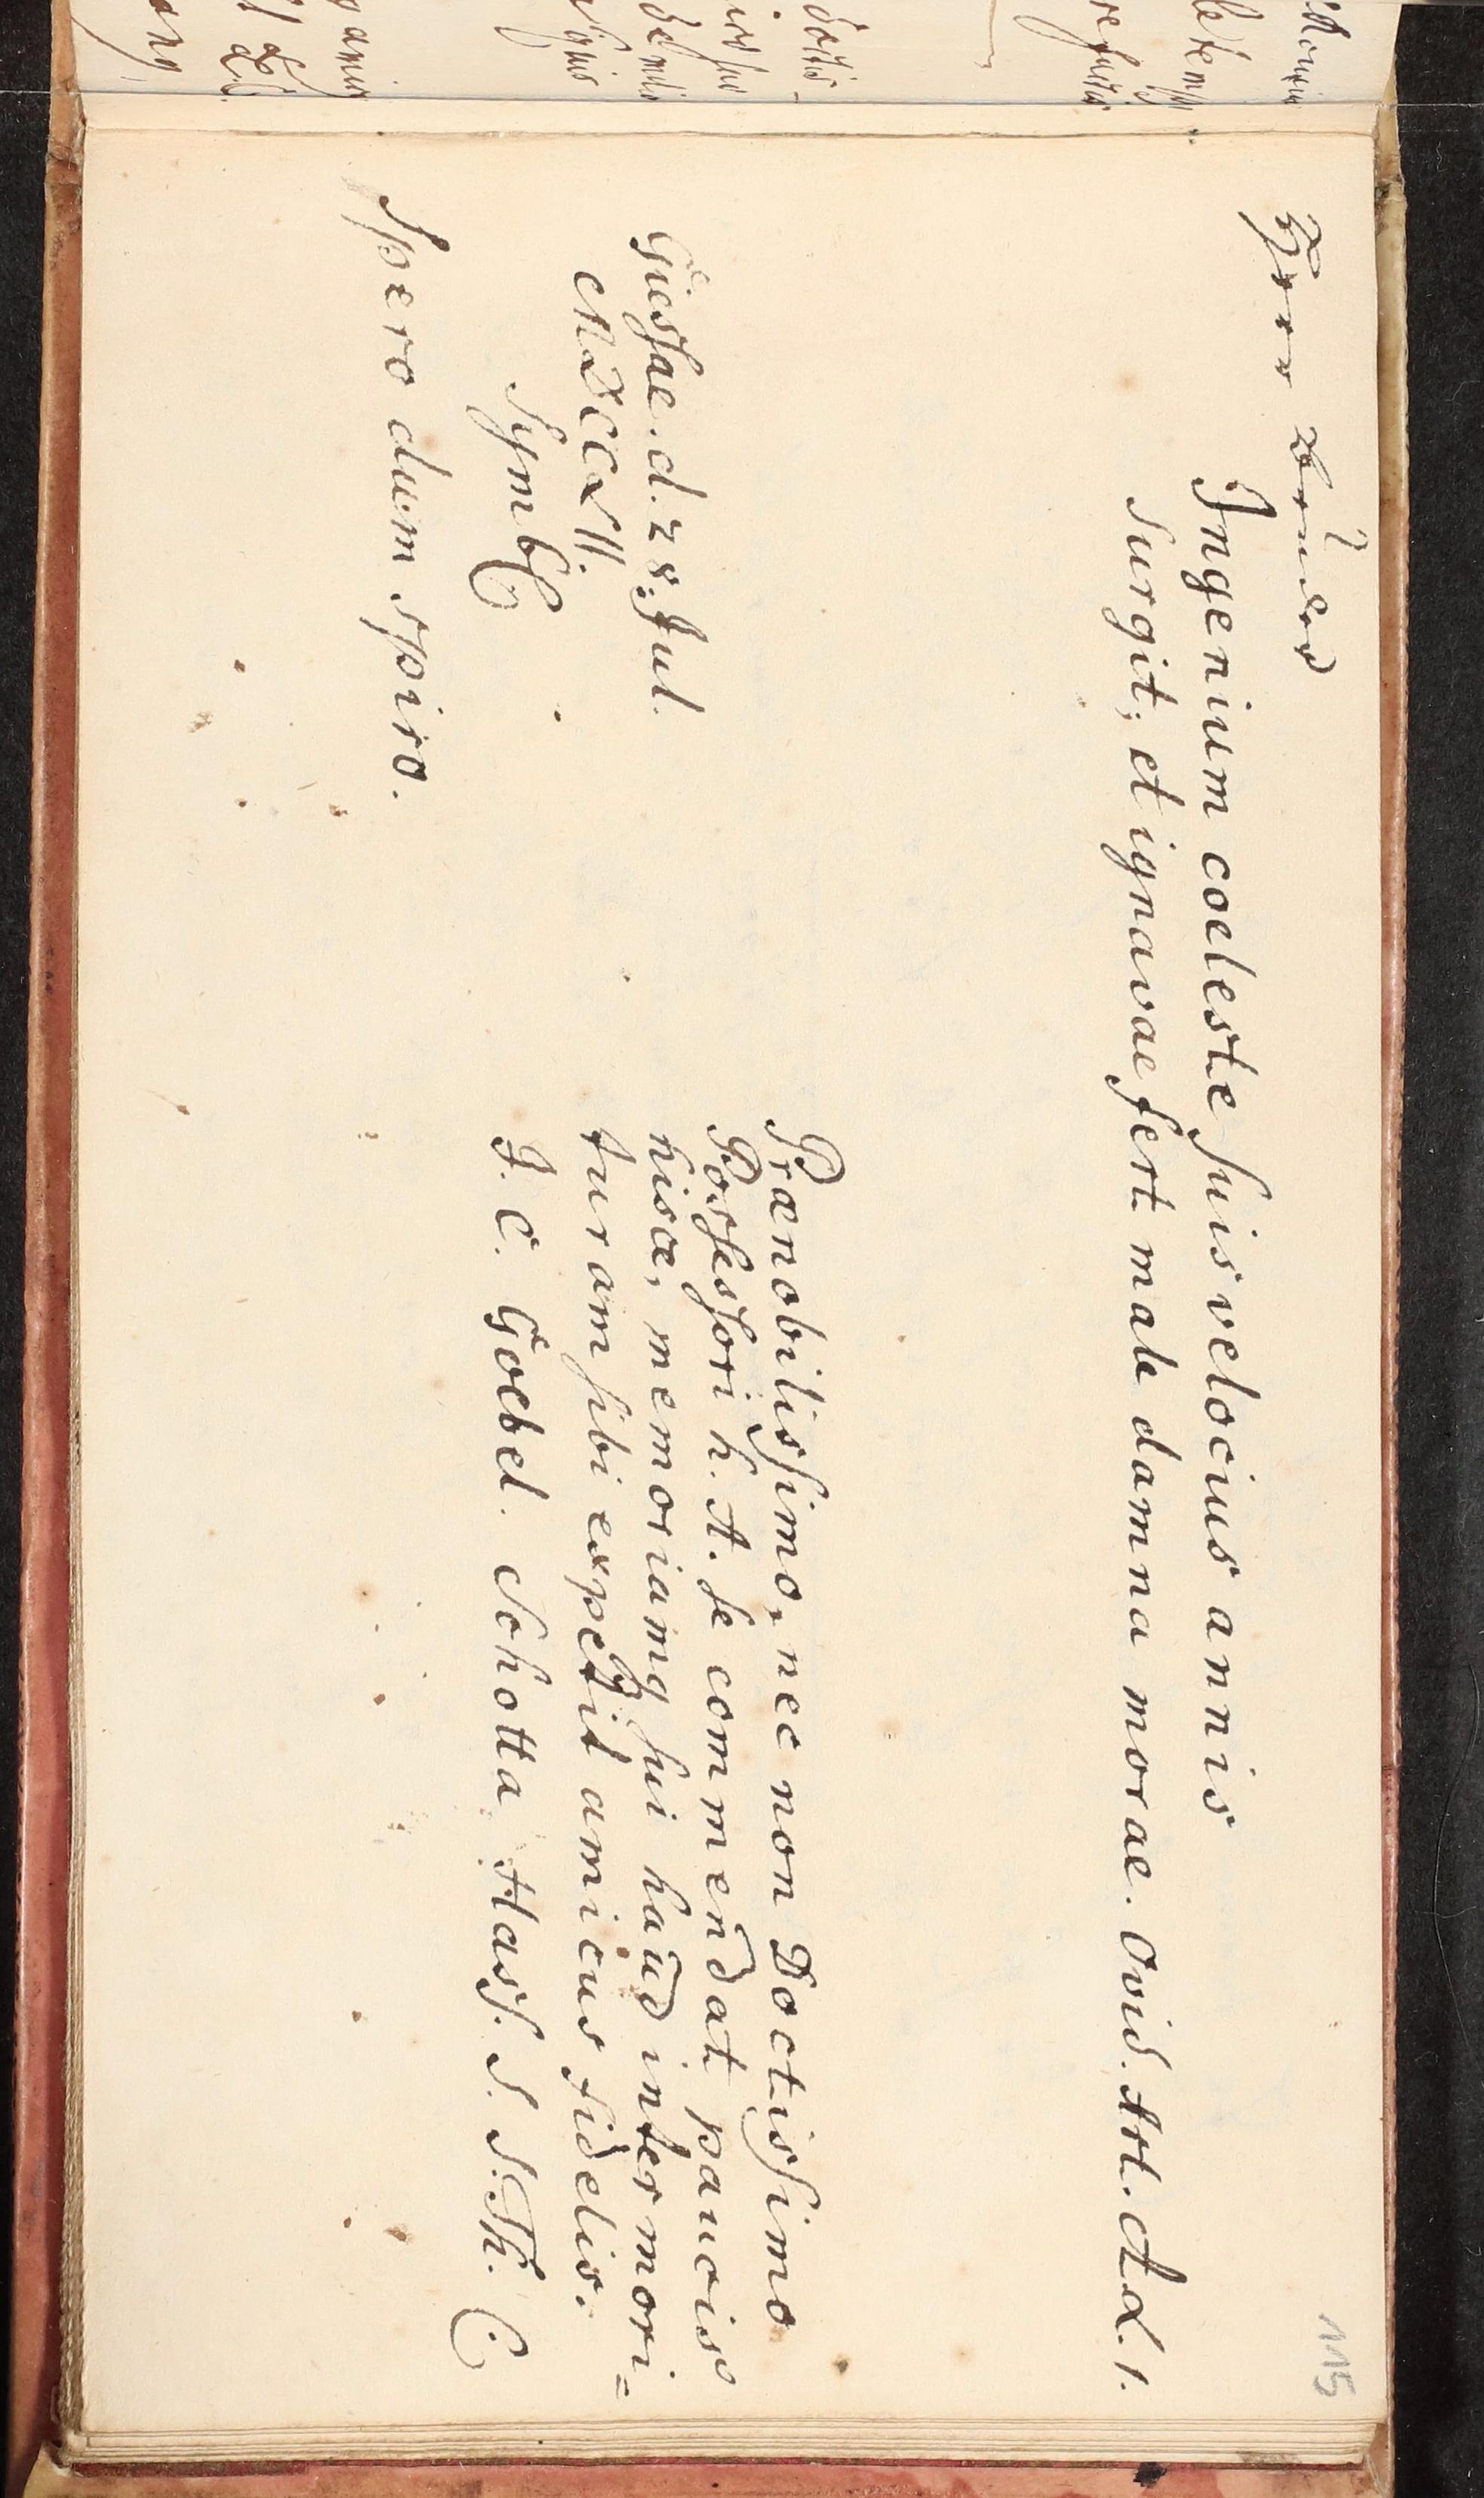 115
Ingenium coeleste suis velocius annis
Surgit; et ignavae fert male damna morae. Ovid. Art. Am. 1.
Prænobilissimo, nec non Doctissimo
Possessori h. A. se commendat paucis
hisce, memoriamq sui haud intermori=
turam sibi expetit amicus fidelis.
J. C. Goebel. Schotta Hass. S. S. Th. C.
Giessae. d. 28. Jul.
MDCCXLII.
Symb.
Spero dum spiro.